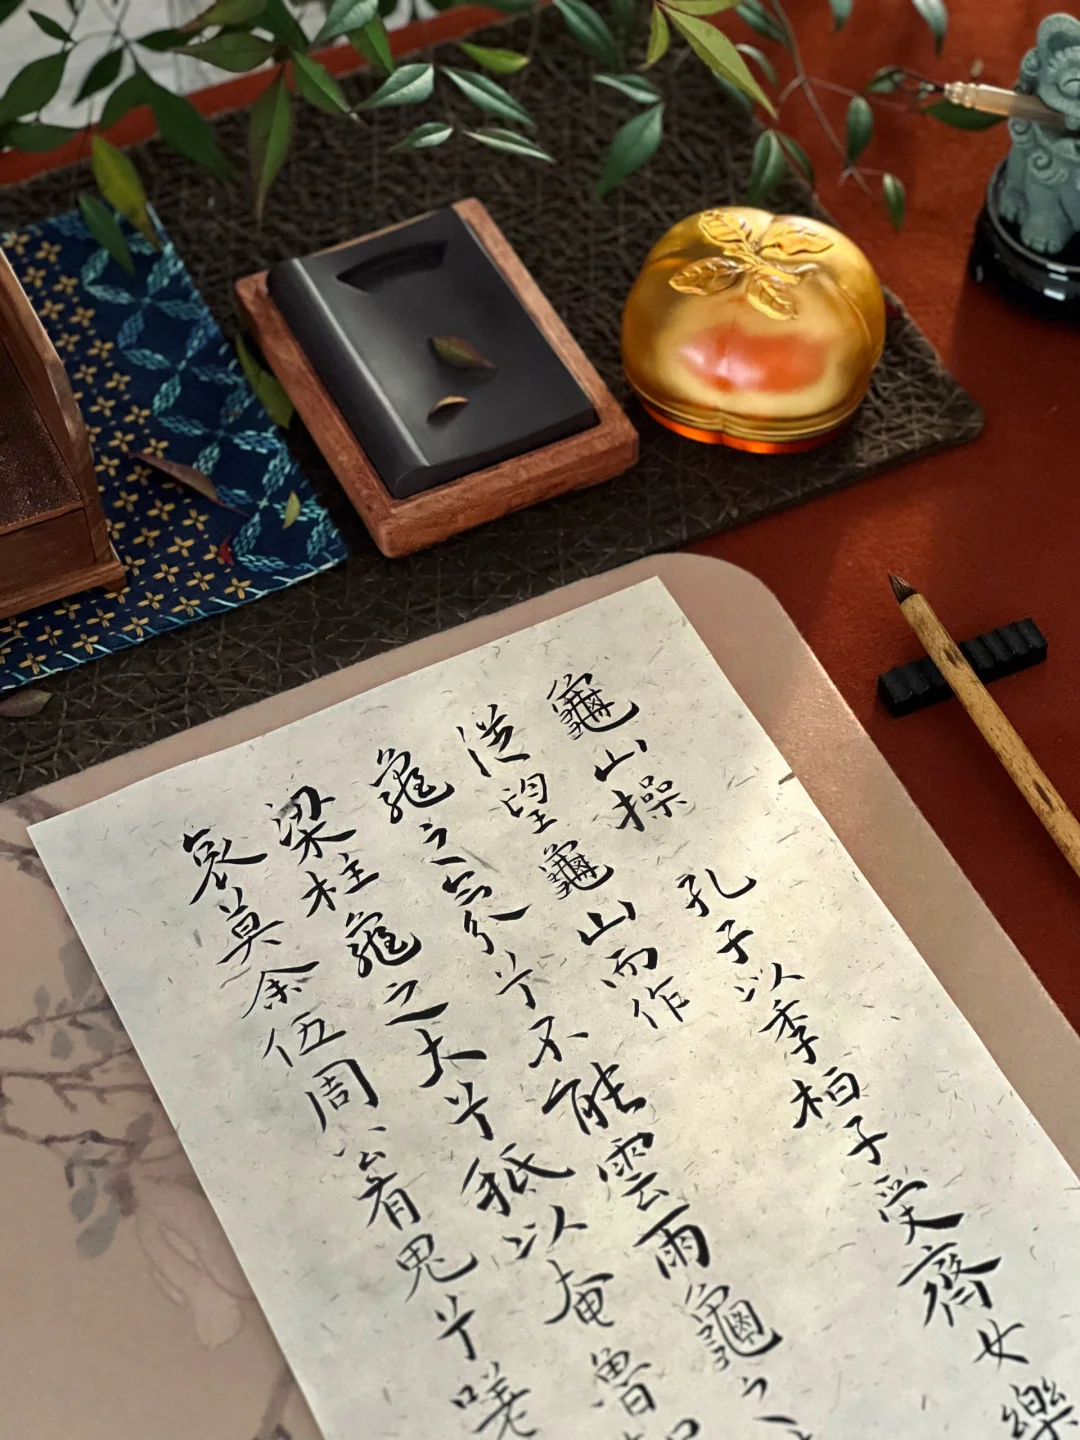 龜山操 孔子以季柏子受齊女樂
從望龜山而作
龜之氛兮不能雲雨龜之
梁柱龜之大兮祗以奄魯
哀莫余伍周公有鬼兮嗟